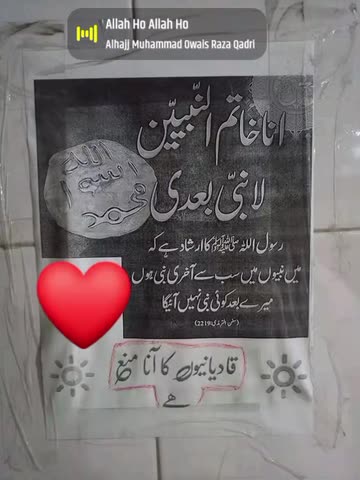 Allah Ho Allah Ho
Alhajj Muhammad Owais Raza Qadri
انا خاتم النّبیّین
لا نبیّ بعدی
اللہ
رسول
محمد
رسول اللہ ﷺ کا ارشاد ہے کہ
میں نبیوں میں سب سے آخری نبی ہوں
میرے بعد کوئی نبی نہیں آئیگا
(سنن الترمذی: 2219)
قادیانیوں کا آنا منع
ھے